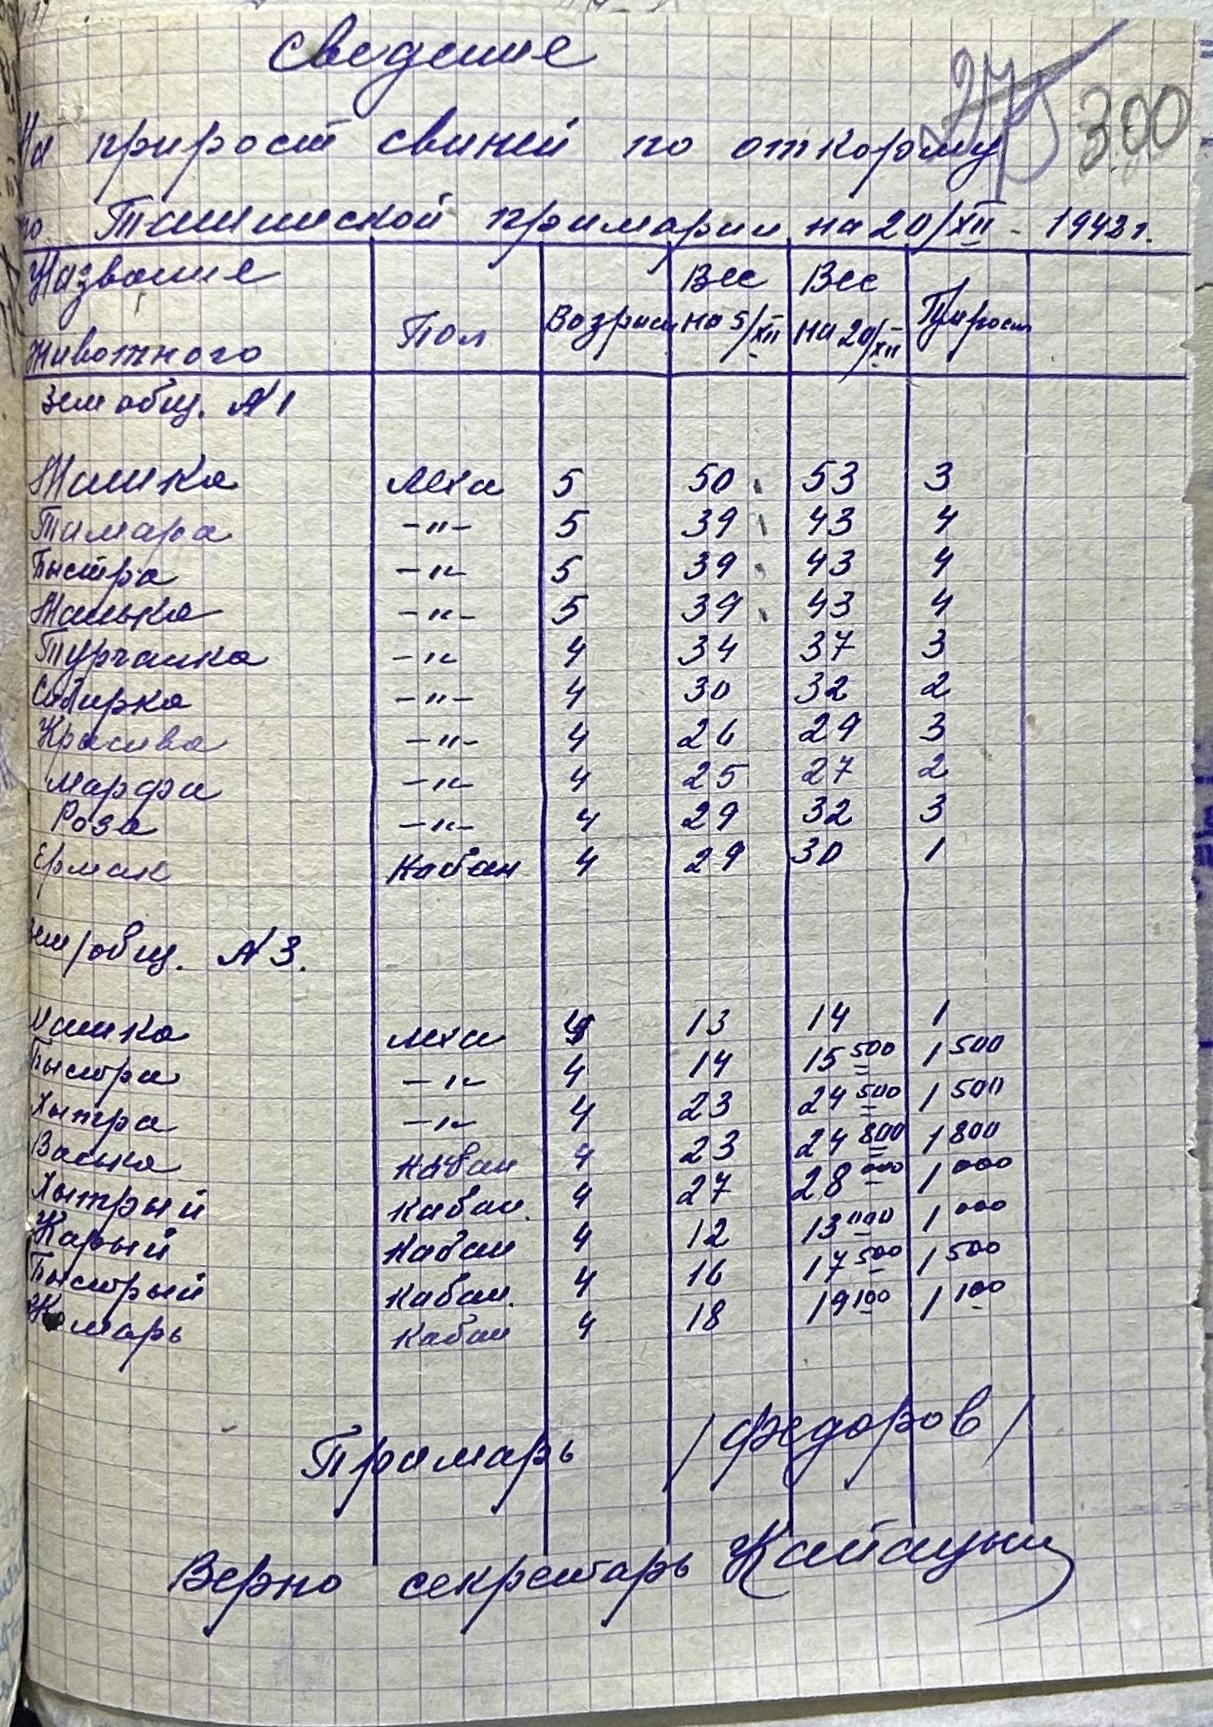 Сведение
300
На прирост свиней по откорому
по Ташлиской примарии на 20/XII - 1942 г.
Название животного Пол Возраст Вес на 5/XII Вес на 20/XII Прирост
Зем общ. N 1
Машка м-ха 5 50 53 3
Тамара -"- 5 39 43 4
Быстра -"- 5 39 43 4
Манька -"- 5 39 43 4
Турчанка -"- 4 34 37 3
Сибирка -"- 4 30 32 2
Красива -"- 4 26 29 3
Марфа -"- 4 25 27 2
Роза -"- 4 29 32 3
Ермак Кабан 4 29 30 1
Зем/общ. N 3.
Машка м-ха 4 13 14 1
Быстра -"- 4 14 15 500 1 500
Хытра -"- 4 23 24 500 1 500
Васька Кабан 4 23 24 800 1 800
Хытрый Кабан 4 27 28 000 1 000
Карый Кабан 4 12 13 000 1 000
Быстрый Кабан 4 16 17 500 1 500
Комарь Кабан 4 18 19 100 1 100
Примарь /Федоров/
Верно секретарь